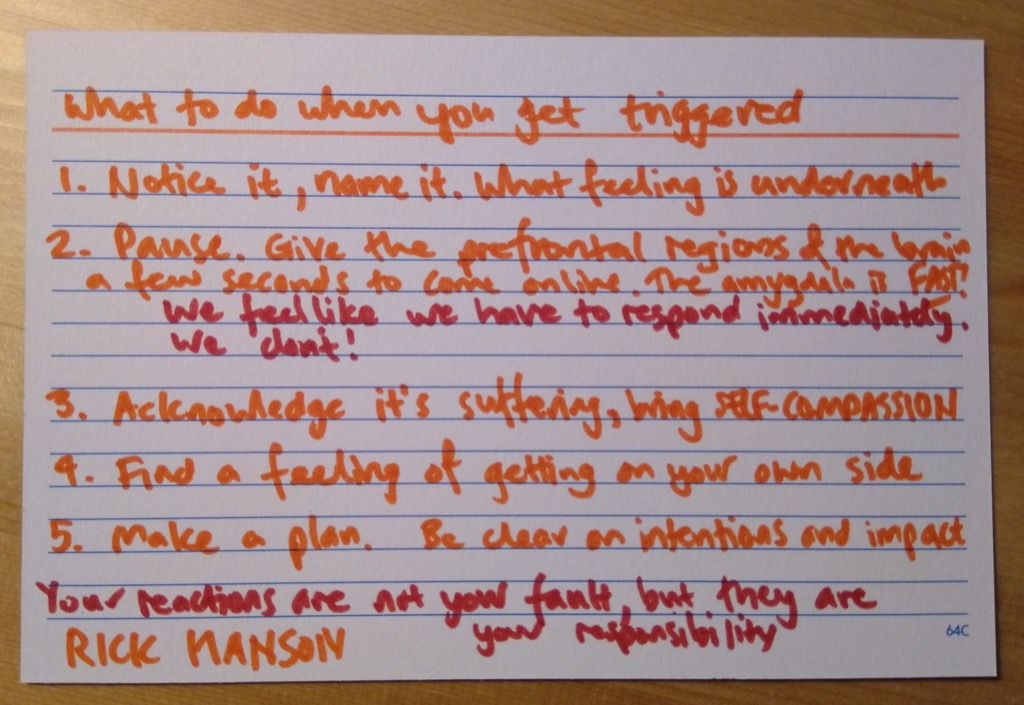 What to do when you get triggered
1. Notice it, name it. What feeling is underneath
2. Pause. Give the prefrontal regions of the brain
a few seconds to come online. The amygdala is FAST!
We feel like we have to respond immediately.
We dont!
3. Acknowledge it's suffering, bring SELF-COMPASSION
4. Find a feeling of getting on your own side
5. Make a plan. Be clear on intentions and impact
Your reactions are not your fault, but they are
your responsibility
RICK HANSON
64C